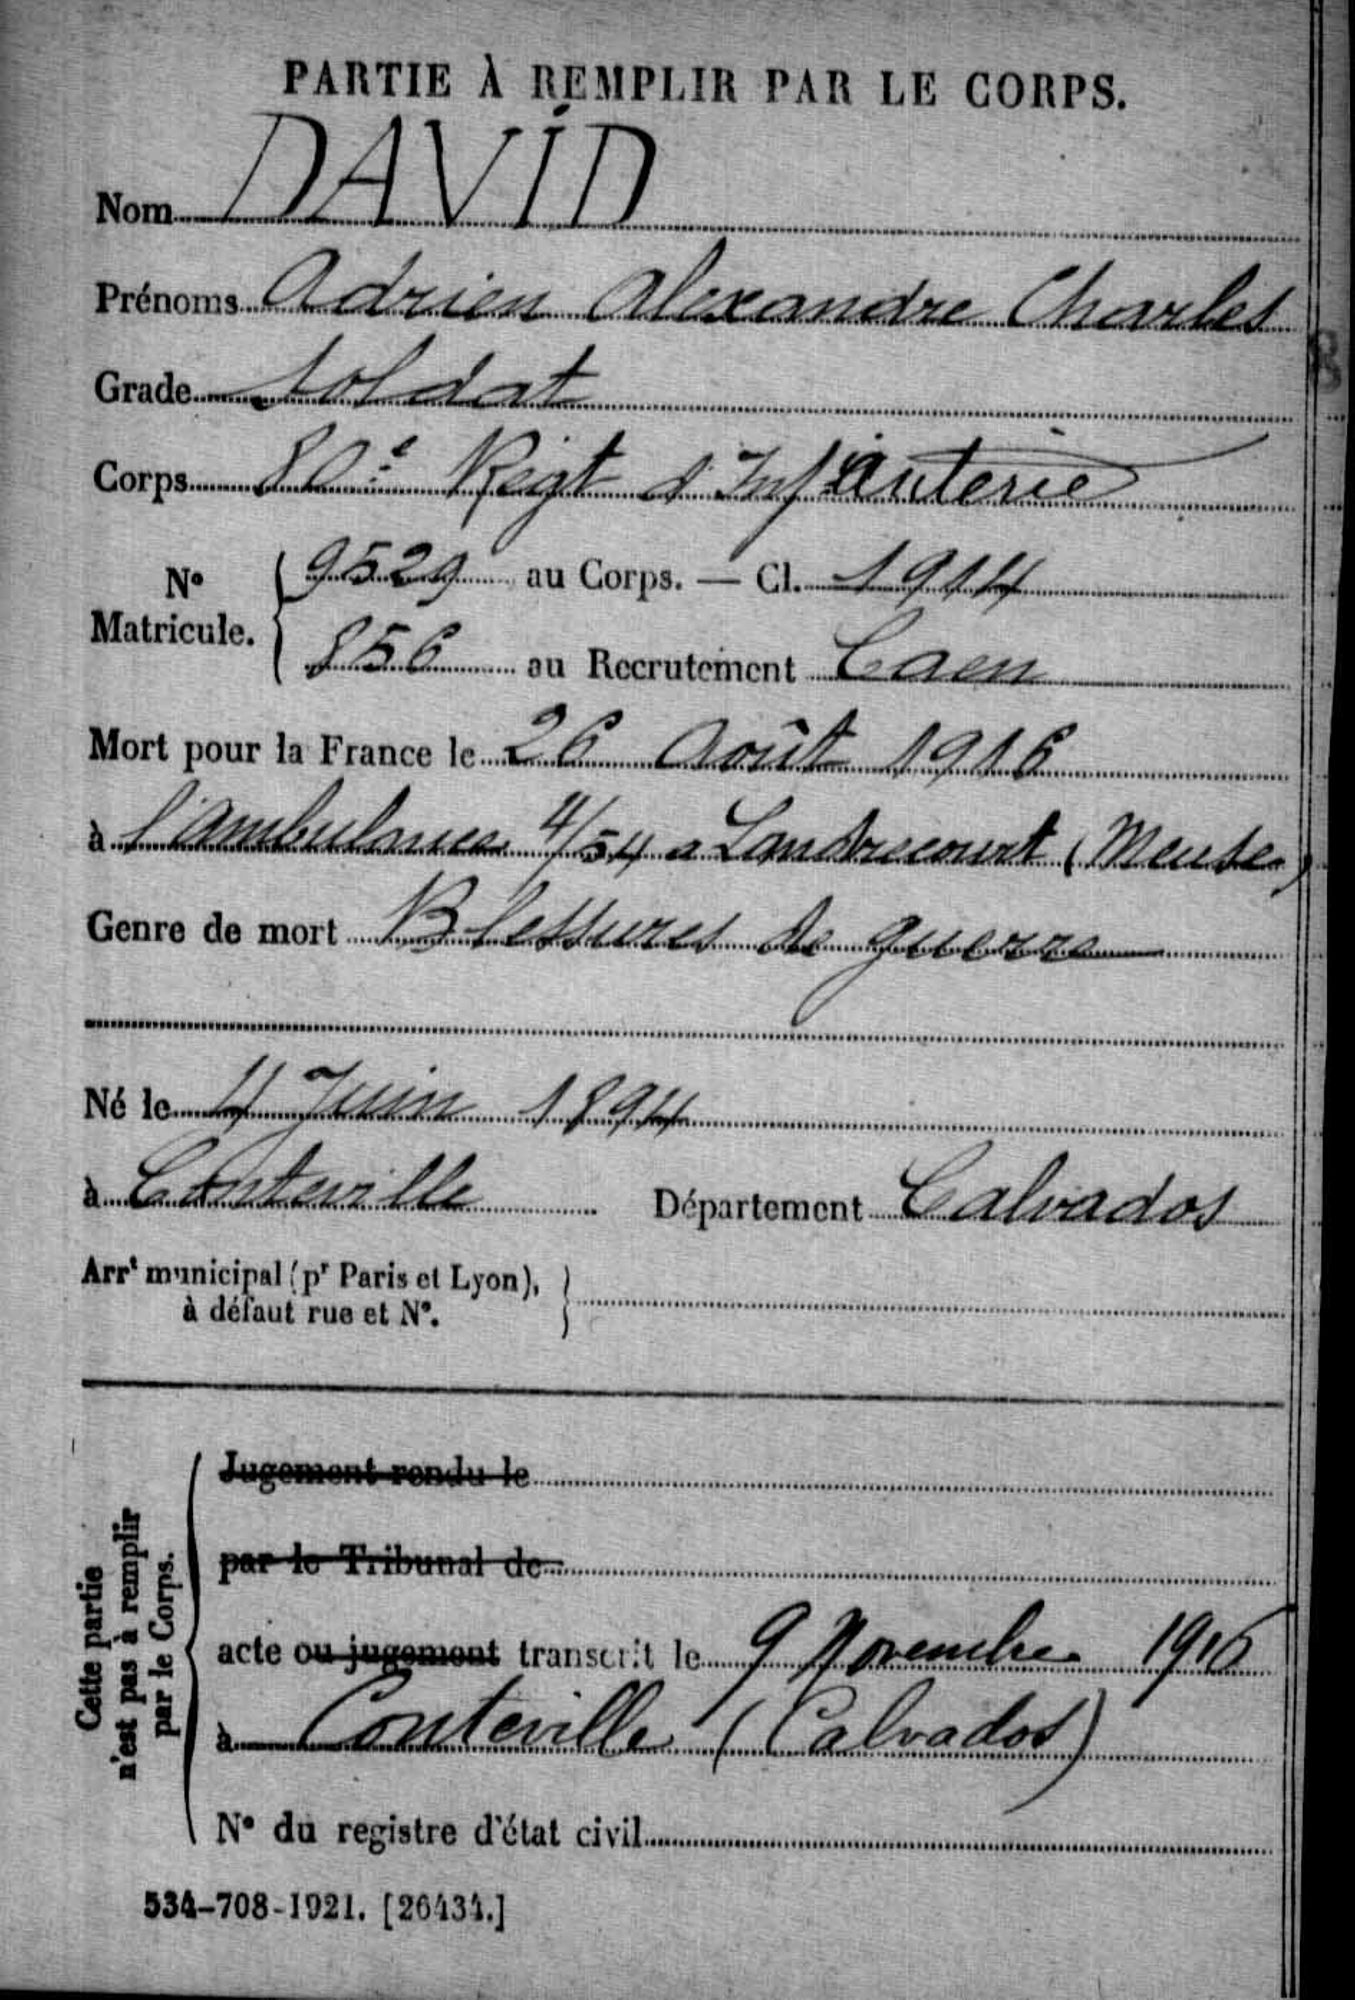 PARTIE À REMPLIR PAR LE CORPS.
Nom DAVID
Prénoms Adrien Alexandre Charles
Grade Soldat
Corps 80e Regt d'Infanterie
No Matricule. 9529 au Corps. — Cl. 1914
856 au Recrutement Caen
Mort pour la France le 26 Août 1916
à l'ambulance 4/54 a Landrecourt (Meuse)
Genre de mort Blessures de guerre
Né le 4 Juin 1894
à Conteville Département Calvados
Arrt municipal (pr Paris et Lyon),
à défaut rue et No.
Cette partie
n'est pas à remplir
par le Corps.
Jugement rendu le
par le Tribunal de
acte ou jugement transcrit le 9 Novembre 1916
à Conteville (Calvados)
No du registre d'état civil
534-708-1921. [26434.]